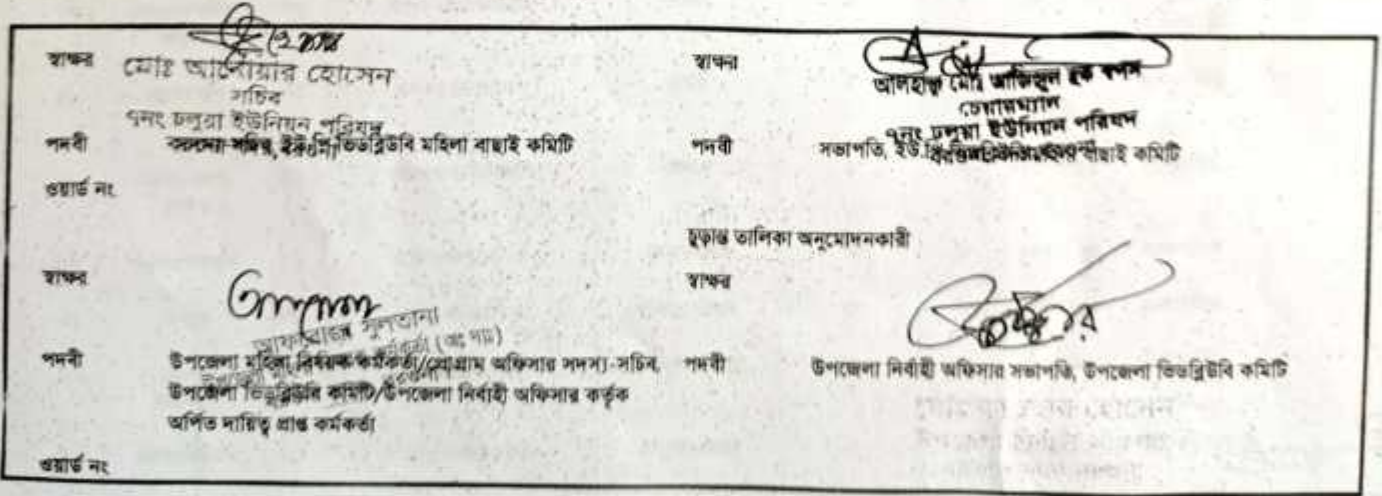 স্বাক্ষর
মোঃ আনোয়ার হোসেন
সচিব
৭নং ঢলুয়া ইউনিয়ন পরিষদ
পদবী সদস্য সচিব, ইউ.পি ভিডব্লিউবি মহিলা বাছাই কমিটি
ওয়ার্ড নং
স্বাক্ষর
আলহাজ্ব মোঃ আজিজুল হক স্বপন
চেয়ারম্যান
৭নং ঢলুয়া ইউনিয়ন পরিষদ
পদবী সভাপতি, ইউ.পি বাছাই কমিটি
চুড়ান্ত তালিকা অনুমোদনকারী
স্বাক্ষর
সুলতানা
পদবী উপজেলা মহিলা বিষয়ক কর্মকর্তা/প্রোগ্রাম অফিসার সদস্য-সচিব,
উপজেলা ভিডব্লিউবি কমিটি/উপজেলা নির্বাহী অফিসার কর্তৃক
অর্পিত দায়িত্ব প্রাপ্ত কর্মকর্তা
ওয়ার্ড নং
স্বাক্ষর
পদবী উপজেলা নির্বাহী অফিসার সভাপতি, উপজেলা ভিডব্লিউবি কমিটি
হোসেন